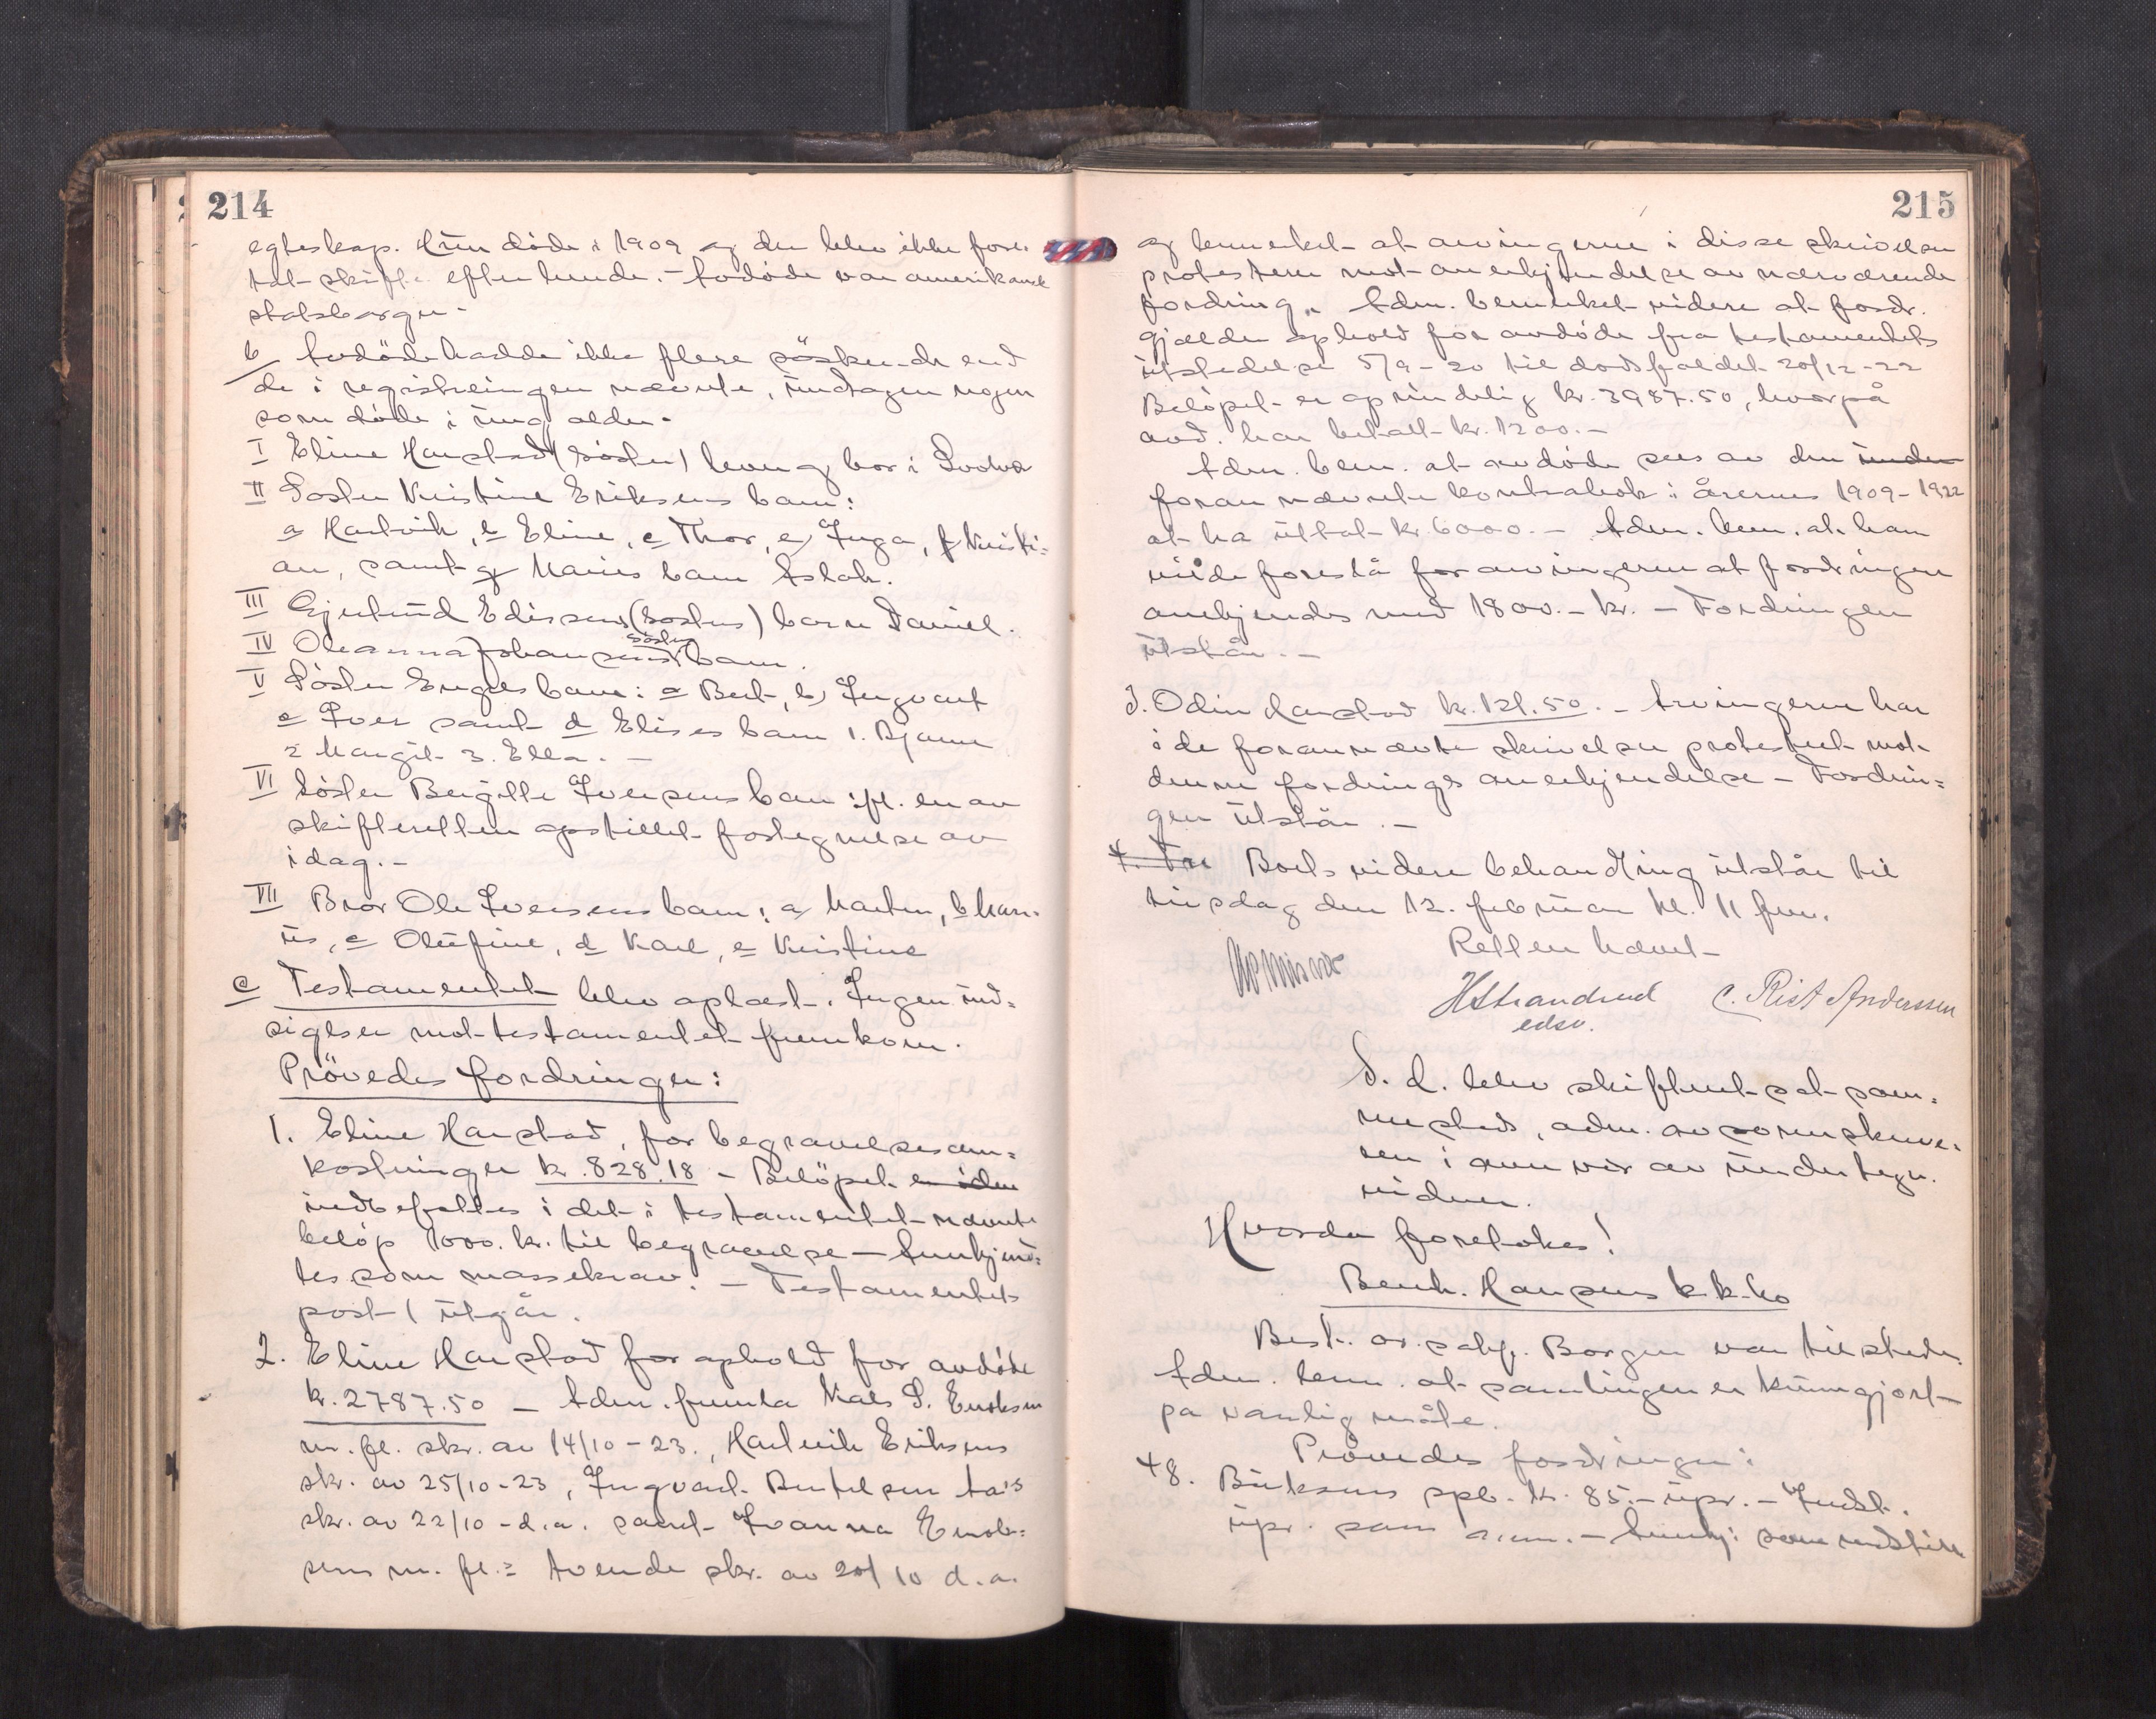 214
egteskap. Hun døde i 1909 og der blev ikke fore-
tat skifte efter hende. - Avdøde var amerikansk
statsborger -
b Avdøde hadde ikke flere søskende end
de i registreringen nævnte, undtagen nogen
som døde i ung alder.
I Eline Harstad (søster) lever og bor i
II Søster Kristine Eriksens barn:
a Hartvik, b Eline, c Thor, e) Inga, f Kristi=
an, samt g Maries barn Aslak.
III Gjertrud Edissens (søsters) barn Daniel.
IV Oleanna Johansens søster barn.
V Søster Engels barn: a Bert, b) Ingvart
c Iver samt d Elises barn 1. Bjarne
2 Margit 3. Ella. -
VI Søster Bergitte Iversens barn: if. en av
skifteretten opstillet fortegnelse av
idag. -
VII Bror Ole Iversens barn: a Marten, b Mari-
us, c Olufine, d Karl, e Kristine
c Testamentet blev oplæst. Ingen ind=
sigelser mot testamentet fremkom.
Prövedes fordringer:
1. Eline Harstad, for begravelsesom=
kostninger kr. 828.18 - Beløpet er iden
indbefattes i det i testamentet nævnte
beløp 1000. kr. til begravelse - Anerkjend=
tes som massekrav. - Testamentets
post 1 utgår.
2. Eline Harstad for ophold for avdøde
kr. 2787.50 - Adm. fremla Mals S. Enoksen
m. fl. skr. av 14/10-23., Hartvik Eriksens
skr. av 25/10-23, Ingvart Bertelsen
skr. av 22/10 - d.a. samt Ivanna Enok=
sens m. fl.s tvende skr. av 20/10 d.a.
215
og bemerket at arvingerne i disse skrivelser
protesterer mot anerkjendelse av nærværende
fordring. Adm. bemerket videre at fordr.
gjælder ophold for avdøde fra testamentets
utstedelse 5/9-20 til dødsfaldet 20/12-22
Beløpet er oprindelig kr. 3987.50, hvorpå
avd. har betalt kr. 1200. -
Adm. bem. at avdøde sees av den under
foran nævnte kontrabok i årerne 1909-1922
at ha uttat kr. 6000. - Adm. bem. at han
vilde foreslå for arvingerne at fordringen
anerkjendes med 1800. - kr. - Fordringen
utstår. -
3. Odin Harstad kr. 121.50. - Arvingerne har
i de forannævnte skrivelser protestert mot
denne fordrings anerkjendelse - Fordrin=
gen utstår. -
4. For Boets videre behandling utstår til
tirsdag den 12. februar kl. 11 fm.
Retten hævet
HStrandrud C. Rist Anderssen
edsv.
S. d. blev skifteret sat sam=
mesteds, adm. av sorenskrive=
ren i overvær av undertegn.
vidner.
Hvorda foretokes!
Bernh. Hansens k.k.bo
Best. or.sakf. Borgen var tilstede.
Adm. bem. at samlingen er kunngjort
på vanlig måte.
Prøvedes fordringer:
48. Buksnes spb. kr. 85.- upr. - Indst.
upr. som anm. - Anerkj. som indstillet